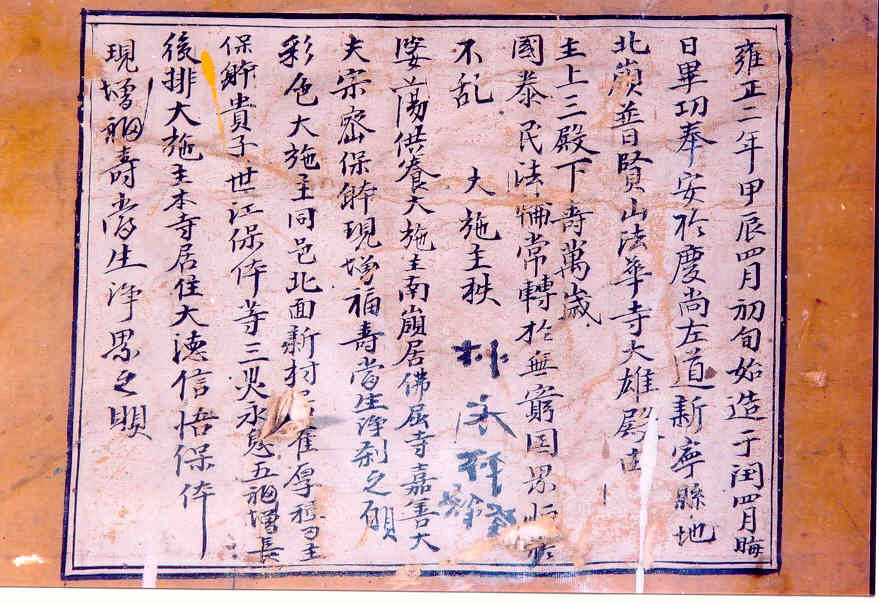 雍正二年甲辰四月初旬始造于闰四月晦
日畢功奉安於慶尚左道新寧縣地
北嶺普賢山法華寺大雄殿
主上三殿下壽萬歲
國泰民法輪常轉於無窮国界
不乱 大施主秩
婆蕩供養大施主南嶺居佛屈寺嘉善大
夫宗密保體現增福壽當生淨刹之願
彩色大施主同邑北面新村居崔厚
保體貴子世江保体等三災永息五福增長
後排大施主本寺居住大德信悟保体
現增福壽當生淨界之願